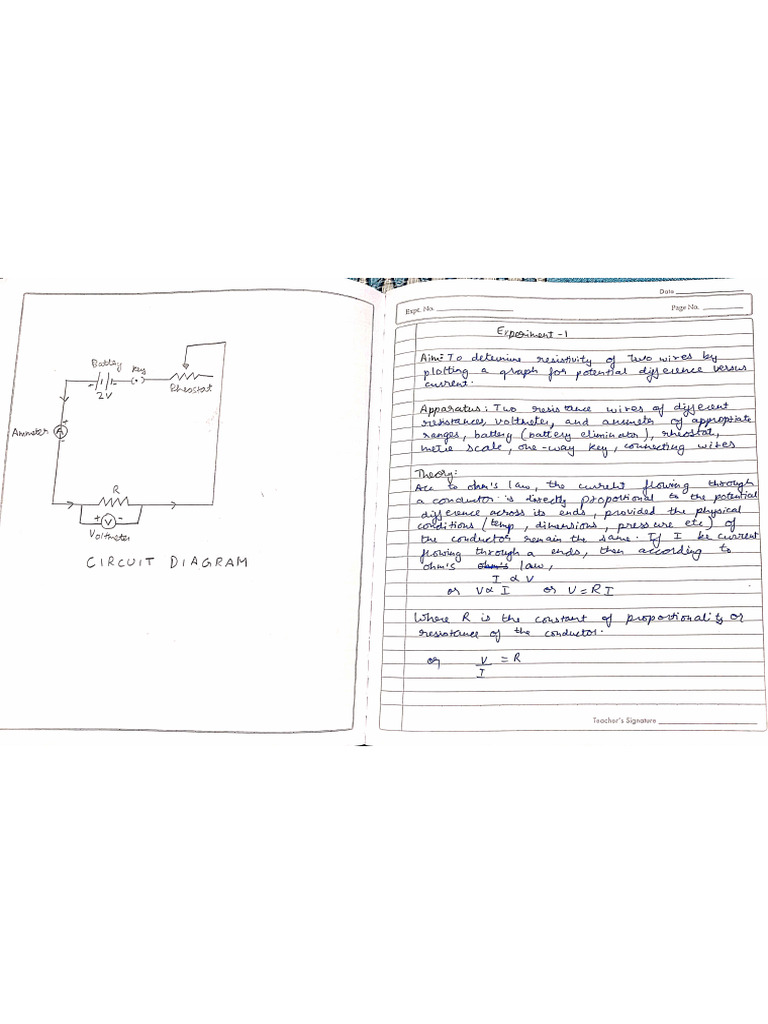 Battery
Key
2V
Rheostat
Ammeter
A
R
V
Voltmeter
CIRCUIT DIAGRAM
Date
Expt. No.
Page No.
Experiment - 1
Aim: To determine resistivity of two wires by
plotting a graph for potential difference versus
current.
Apparatus: Two resistance wires of different
resistances, voltmeter, and ammeter of appropriate
ranges, battery (battery eliminator), rheostat,
metre scale, one-way key, connecting wires
Theory:
Acc to ohm's law, the current flowing through
a conductor is directly proportional to the potential
difference across its ends, provided the physical
conditions (temp, dimensions, pressure etc) of
the conductor remain the same. If I be current
flowing through a ends, then according to
ohm's ohm's law,
I ∝ V
or V ∝ I or V = RI
Where R is the constant of proportionality or
resistance of the conductor.
or V/I = R
Teacher's Signature